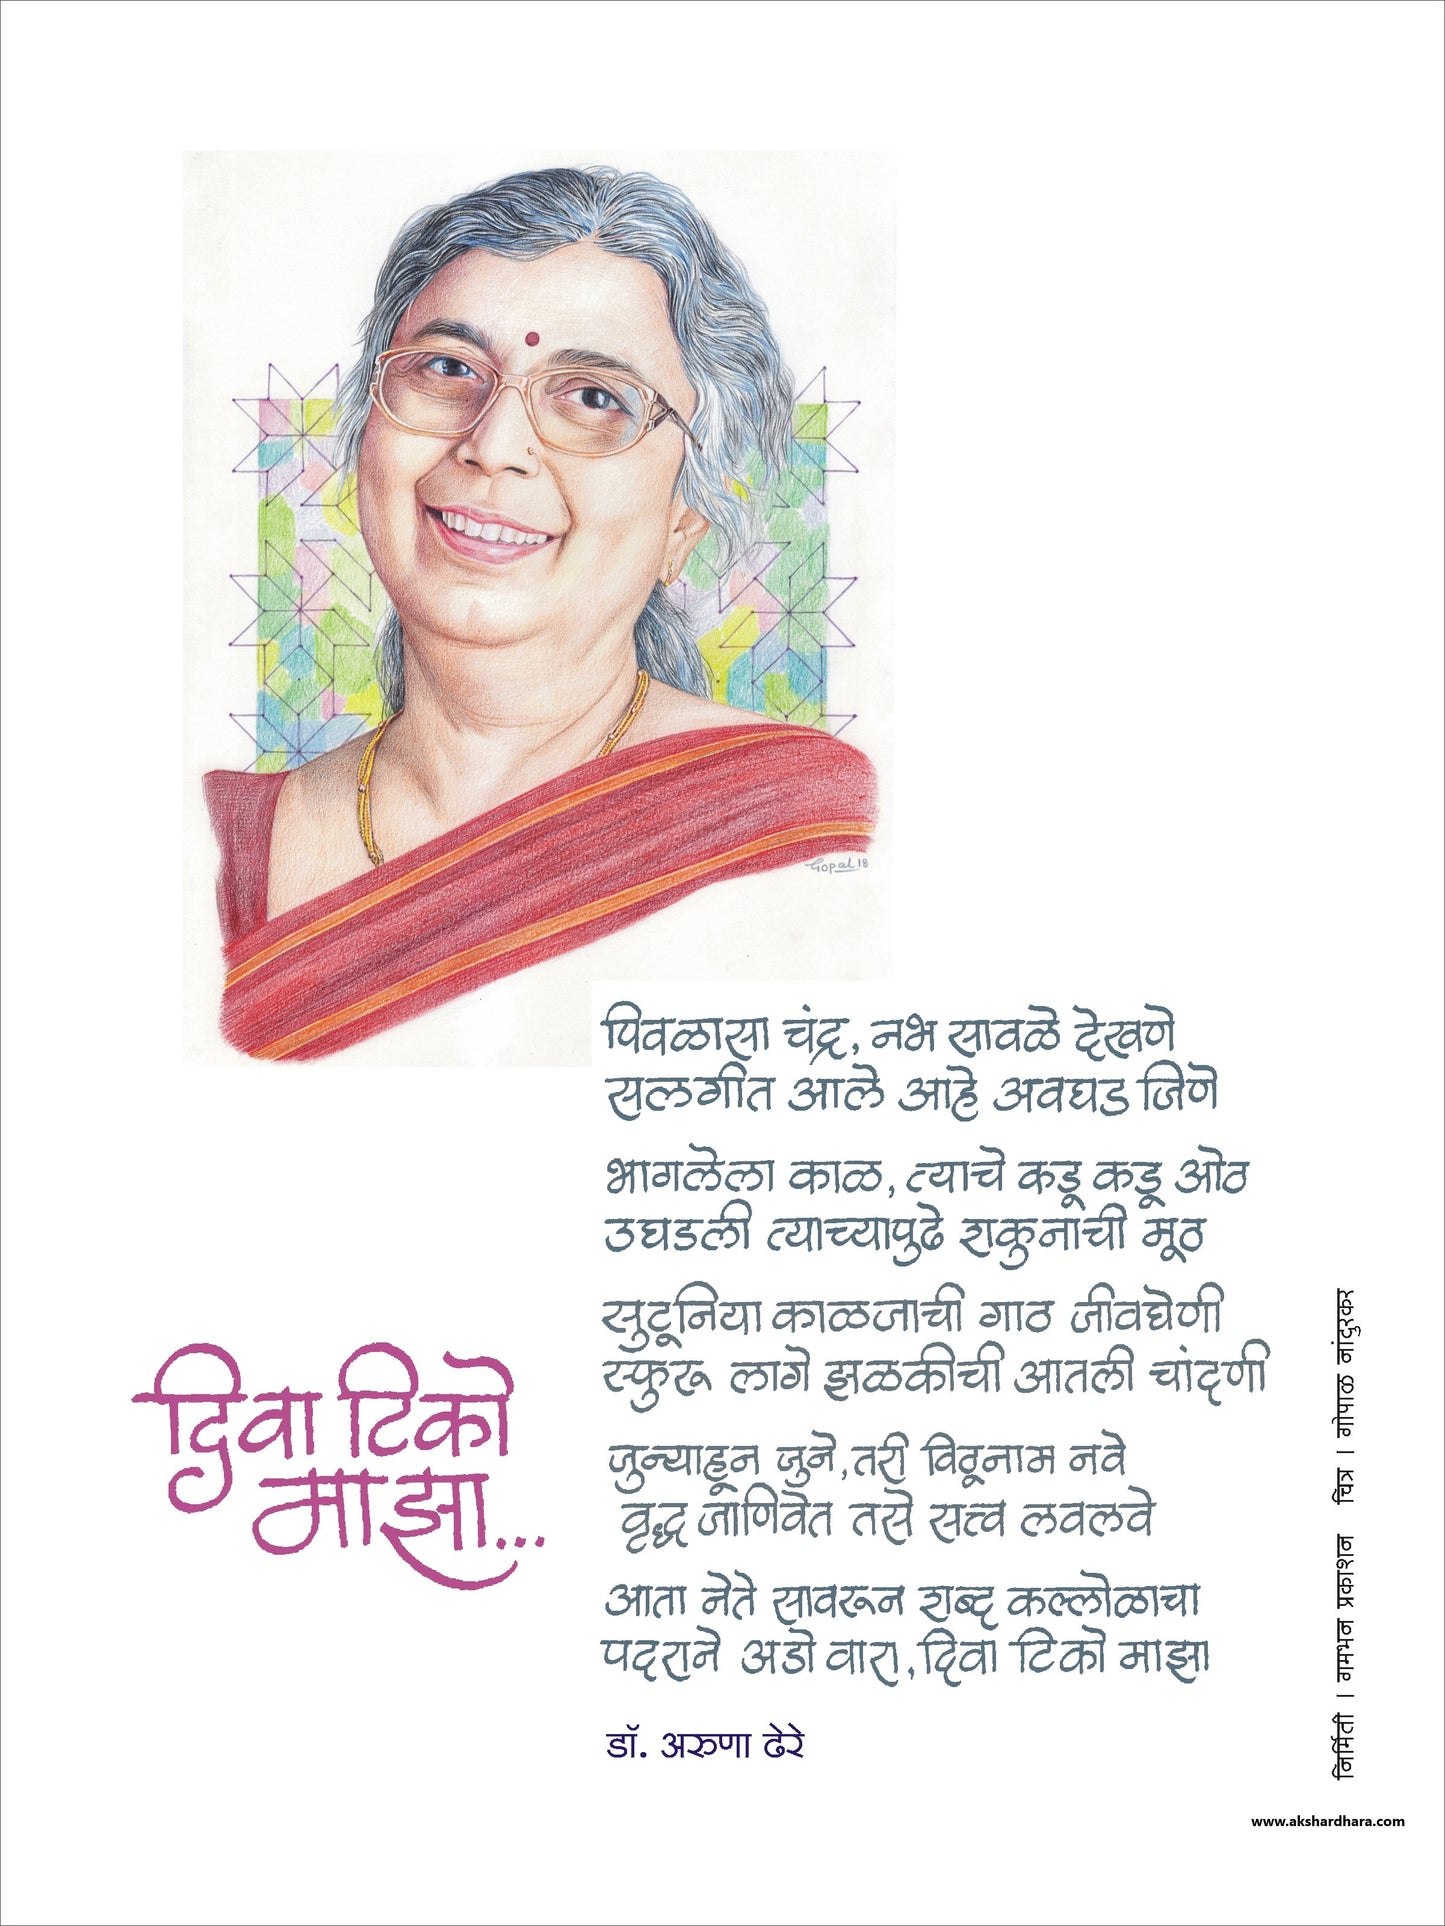 Gopal 18
पिवळासा चंद्र, नभ सावळे देखणे
सलगीत आले आहे अवघड जिणे
भागलेला काळ, त्याचे कडू कडू ओठ
उघडली त्याच्यापुढे शकुनाची मूठ
सुटूनिया काळजाची गाठ जीवघेणी
स्फुरू लागे झळकीची आतली चांदणी
जुन्याहून जुने, तरी विठूनाम नवे
वृद्ध जाणिवेत तसे सत्त्व लवलवे
आता नेते सावरून शब्द कल्लोळाचा
पदराने अडो वारा, दिवा टिको माझा
डॉ. अरुणा ढेरे
दिवा टिको
माझा...
निर्मिती | गमभन प्रकाशन चित्र | गोपाळ नांदुरकर
www.akshardhara.com